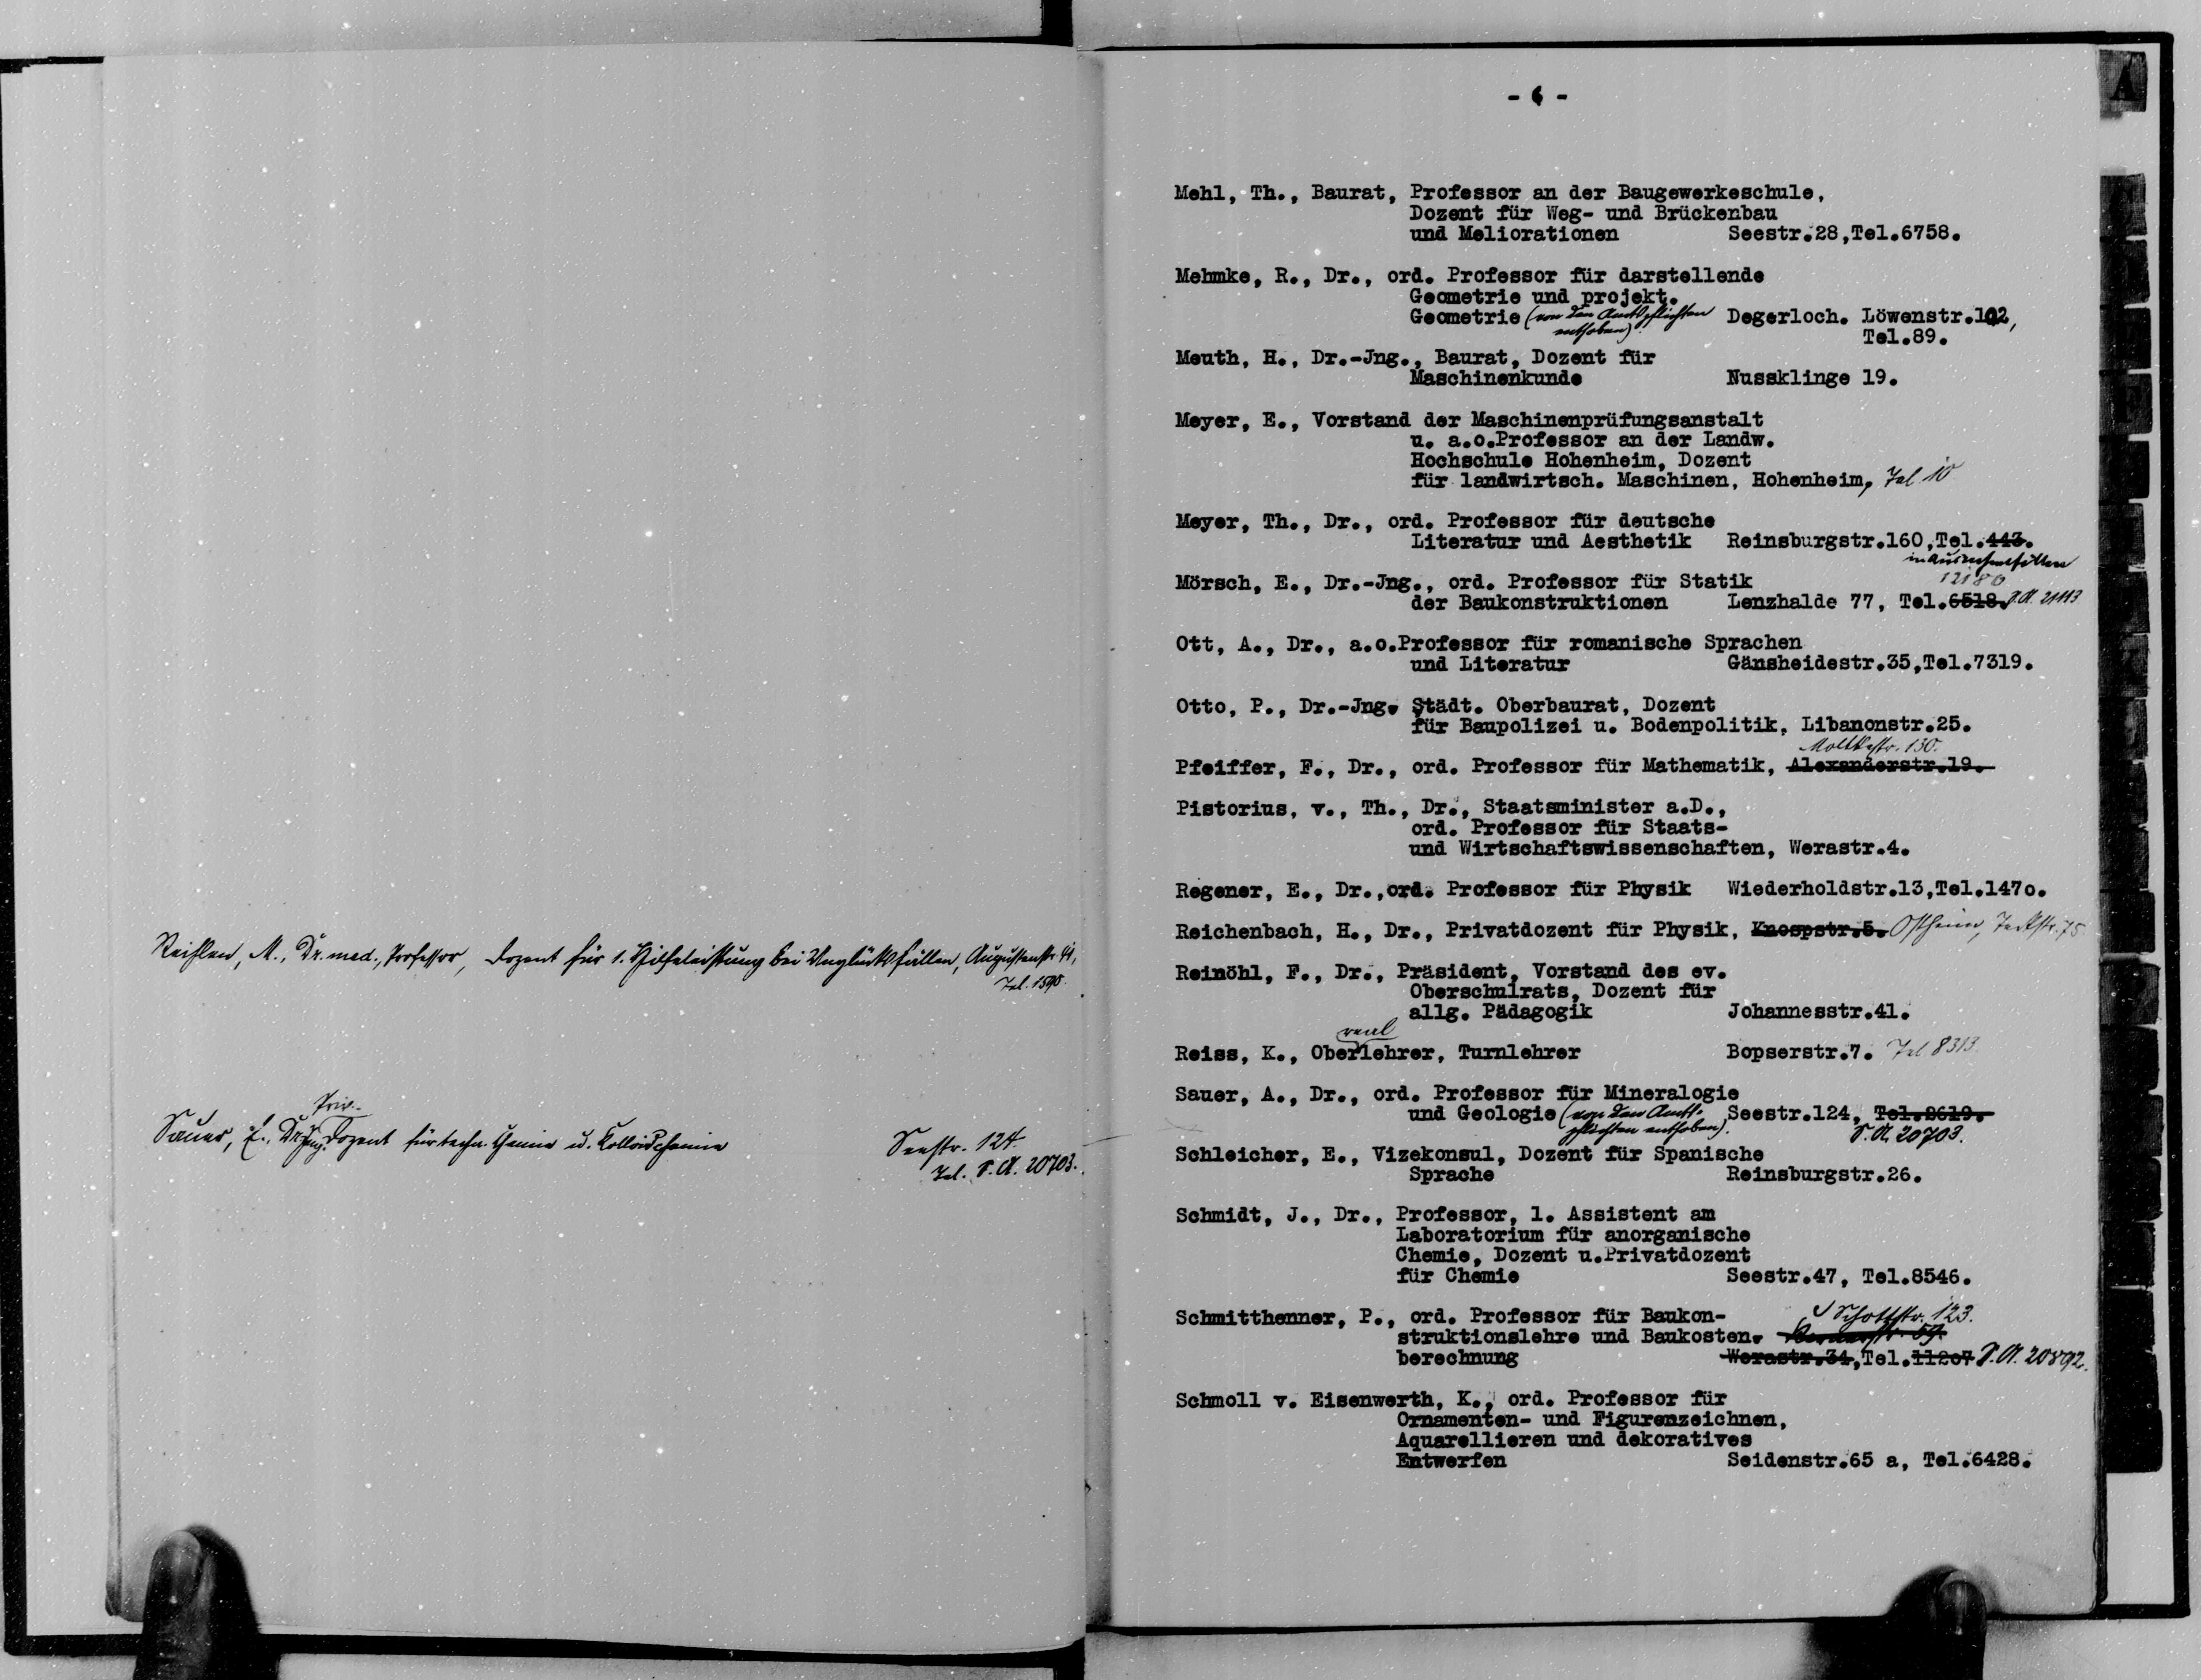 Reihlen, M., Dr. med., Professor, Dozent für 1. Hilfeleistung bei Unglücksfällen, Augustenstr.
Tel.
Priv.-
Sauer, E., Dr. Ing. Dozent für techn. Chemie u. Kolloidchemie Seestr. 124
Tel. S.A. 20703.
- 6 -
Mehl, Th., Baurat, Professor an der Baugewerkeschule,
Dozent für Weg- und Brückenbau
und Meliorationen Seestr.28,Tel.6758.
Mehmke, R., Dr., ord. Professor für darstellende
Geometrie und projekt.
Geometrie (von den Amtspflichten Degerloch. Löwenstr.102,
enthoben) Tel.89.
Meuth, H., Dr.-Jng., Baurat, Dozent für
Maschinenkunde Nussklinge 19.
Meyer, E., Vorstand der Maschinenprüfungsanstalt
u. a.o.Professor an der Landw.
Hochschule Hohenheim, Dozent
für landwirtsch. Maschinen, Hohenheim, Tel 10
Meyer, Th., Dr., ord. Professor für deutsche
Literatur und Aesthetik Reinsburgstr.160,Tel.443.
in Ausnahmefällen
Mörsch, E., Dr.-Jng., ord. Professor für Statik 12180
der Baukonstruktionen Lenzhalde 77, Tel.6518. S.A. 21113
Ott, A., Dr., a.o.Professor für romanische Sprachen
und Literatur Gänsheidestr.35,Tel.7319.
Otto, P., Dr.-Jng. Städt. Oberbaurat, Dozent
für Baupolizei u. Bodenpolitik, Libanonstr.25.
Moltkestr. 130.
Pfeiffer, F., Dr., ord. Professor für Mathematik, Alexanderstr.19.
Pistorius, v., Th., Dr., Staatsminister a.D.,
ord. Professor für Staats-
und Wirtschaftswissenschaften, Werastr.4.
Regener, E., Dr.,ord. Professor für Physik Wiederholdstr.13,Tel.147o.
Reichenbach, H., Dr., Privatdozent für Physik, Knospstr.5. Ostheim, Teckstr. 75
Reinöhl, F., Dr., Präsident, Vorstand des ev.
Oberschulrats, Dozent für
allg. Pädagogik Johannesstr.41.
real
Reiss, K., Oberlehrer, Turnlehrer Bopserstr.7. Tel 8313
Sauer, A., Dr., ord. Professor für Mineralogie
und Geologie (von den Amts- Seestr.124, Tel.2619.
pflichten enthoben). S.A. 20703.
Schleicher, E., Vizekonsul, Dozent für Spanische
Sprache Reinsburgstr.26.
Schmidt, J., Dr., Professor, 1. Assistent am
Laboratorium für anorganische
Chemie, Dozent u.Privatdozent
für Chemie Seestr.47, Tel.8546.
Schmitthenner, P., ord. Professor für Baukon- Schottstr. 123.
struktionslehre und Baukosten-
berechnung Werastr.34,Tel.112o7 S.A. 20892.
Schmoll v. Eisenwerth, K., ord. Professor für
Ornamenten- und Figurenzeichnen,
Aquarellieren und dekoratives
Entwerfen Seidenstr.65 a, Tel.6428.